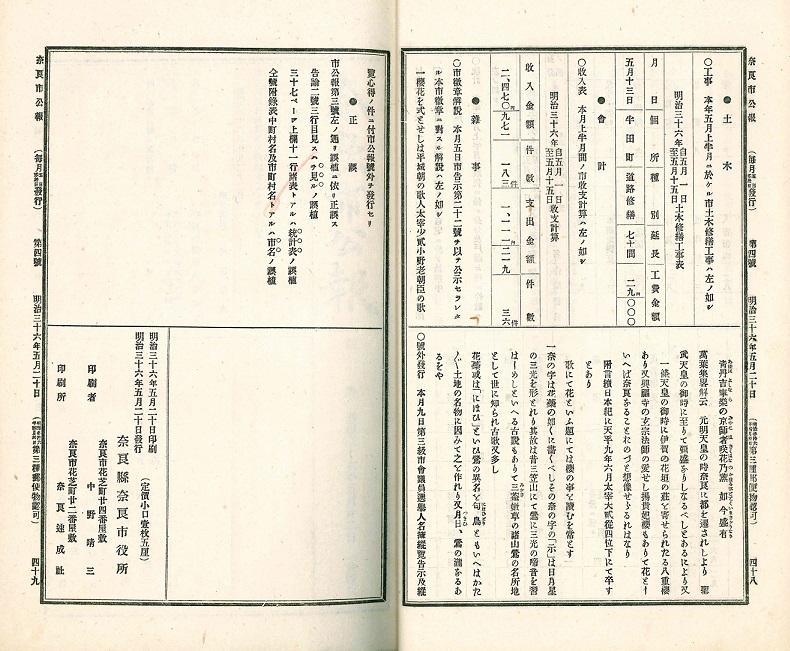 奈良市公報
(毎月
發行)
第四號
明治三十六年五月二十日
第三種郵便物認可)
四十八
●土木
〇工事 本年五月上半月ニ於ケル市土木修繕工事ハ左ノ如シ
明治三十六年自五月一日至五月十五日土木修繕工事表
月日 個所 種別 延長 工費金額
五月十三日 半田町 道路修繕 七十間 二九円〇〇〇
●會計
〇收入表 本月上半月間ノ市收支計算ハ左ノ如シ
明治三十六年自五月一日至五月十五日收支計算
收入金額 件數 支出金額 件數
二、四七〇円九七二 一八三件 一、二一一円二一九 三六件
●雜事
〇市徽章解說 本月五日市告示第二十二號ヲ以テ公示セラレタ
ル本市徽章ニ對スル解說ハ左ノ如シ
一櫻花を式とせしは平城朝の歌人太宰少貳小野老朝臣の歌
青丹吉寧樂の京師者咲花乃薫如今盛有
萬葉集畧解云 元明天皇の時奈良に都を遷されしより 聖
武天皇の御時に至りて猶盛をりしなるべしとあるにより又
一條天皇の御時に伊賀の花垣の莊を寄せられたる八重櫻
あり又興福寺の玄宗法師の愛せし楊貴妃櫻もありて花と
いへば奈良をることおのづと想像せらるればなり
附言續日本紀に天平九年六月太宰大貳從四位下にて卒す
とあり
歌にて花といふ題にては櫻の事を讀むを常とす
一奈の字は花蘂の如くに書くべしその奈の字の「示」は日月星
の三光を形とれり其故は昔三笠山にて鶯に三光の啼音を習
はーめしといへる古說もありて三笠山の鶯の名所地
として世に知られ古歌又多し
花蘂或は「にほひ」といひ鶯の異名と匂鳥ともいへばかた
〴〵土地の名物に因みて之を作れり又月日、鶯の遊をるあ
るをや
〇號外發行 本月九日第三級市會議員選擧人名簿縱覽告示及縱
奈良市公報
(毎月
發行)
第四號
明治三十六年五月二十日
第三種郵便物認可)
四十九
覽心得ノ件ニ付市公報號外ヲ發行セリ
●正誤
市公報第三號左ノ通リ誤植ニ依リ正誤ス
告諭二號三行目見スハヲ見ルノ誤植
三十七ページ上欄十一行諸表トアルハ統計表ノ誤植
仝號附錄表中町村名及市町村名トアルハ市名ノ誤植
明治三十六年五月二十日印刷
明治三十六年五月二十日發行
(定價小口壹枚五厘)
奈良縣奈良市役所
奈良市花芝町廿四番屋敷
印刷者 中野靖三
奈良市花芝町廿二番屋敷
印刷所 奈良速成社